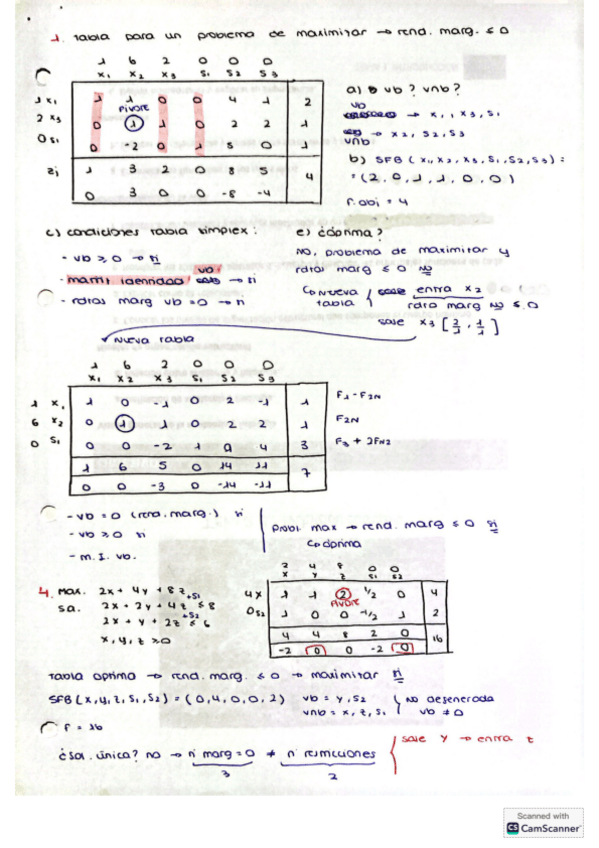 1. Tabla para un problema de maximizar → rend. marg. ≤ 0
1 6 2 0 0 0
x₁ x₂ x₃ s₁ s₂ s₃
1 x₁ 1 1 0 0 4 1 2
Pivote
2 x₃ 0 1 1 0 2 2 1
0 s₁ 0 -2 0 1 5 0 1
zj 1 3 2 0 8 5 4
0 3 0 0 -8 -4
a) vb? vnb?
vb → x₁, x₃, s₁
vnb → x₂, s₂, s₃
b) SFB (x₁, x₂, x₃, s₁, s₂, s₃) =
= (2, 0, 1, 1, 0, 0)
f. obj = 4
c) condiciones tabla simplex:
- vb ≥ 0 → si
- matriz identidad vb → si
- rdtos marg vb = 0 → si
e) ¿óptima?
NO, problema de maximizar y
rdtos marg ≤ 0 NO
↳ nueva tabla { entra x₂
rdto marg NO ≤ 0
sale x₃ [2/1, 1/1]
Nueva tabla
1 6 2 0 0 0
x₁ x₂ x₃ s₁ s₂ s₃
1 x₁ 1 0 -1 0 2 -1 1 F₁ - F₂N
6 x₂ 0 1 1 0 2 2 1 F₂N
0 s₁ 0 0 -2 1 9 4 3 F₃ + 2F₂N
1 6 5 0 14 11 7
0 0 -3 0 -14 -11
- vb = 0 (rend. marg.) si
- vb ≥ 0 si
- m. I. vb.
Probl. max → rend. marg ≤ 0 si
↳ óptima
4. Max. 2x + 4y + 8z
s.a. 2x + 2y + 4z +s1 ≤ 8
2x + y + 2z +s2 ≤ 6
x, y, z ≥ 0
2 4 8 0 0
x y z s₁ s₂
4 y 1 1 2 1/2 0 4
Pivote
0 s₂ 1 0 0 -1/2 1 2
4 4 8 2 0 16
-2 0 0 -2 0
Tabla óptima → rend. marg. ≤ 0 → maximizar si
SFB (x, y, z, s₁, s₂) = (0, 4, 0, 0, 2) vb = y, s₂
vnb = x, z, s₁
{ NO degenerada
vb ≠ 0
f = 16
¿sol. única? no → nº marg = 0 ≠ nº restricciones
3 2
{ sale y → entra z
Scanned with
CS CamScanner